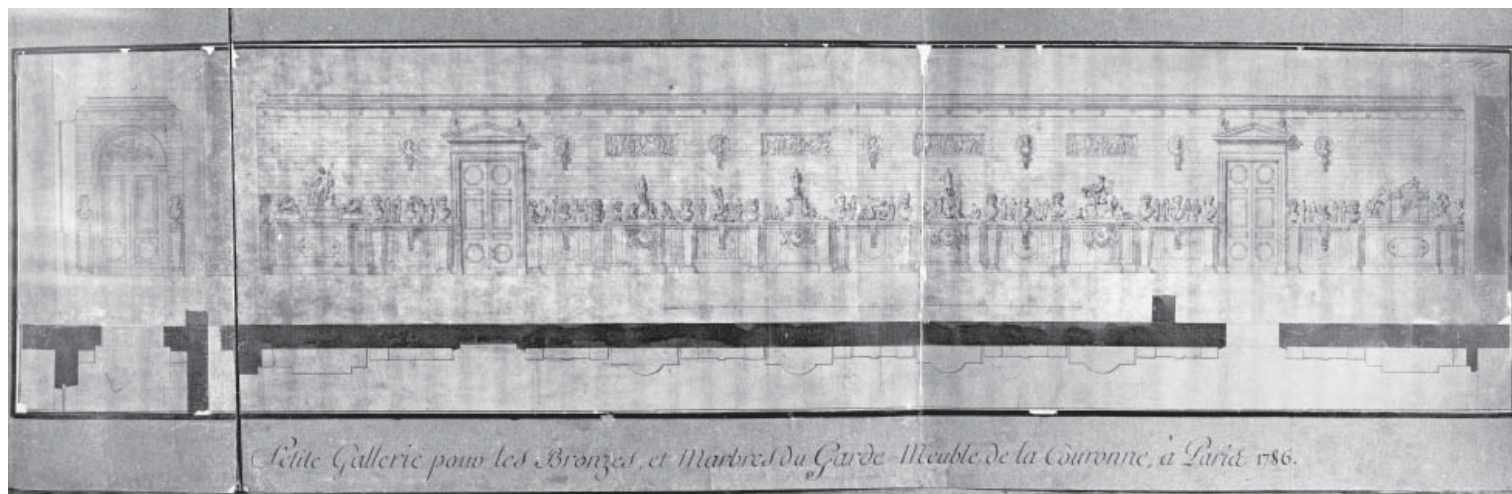 Petite Gallerie pour les Bronzes, et Marbres du Garde-Meuble de la Couronne, à Paris 1786.